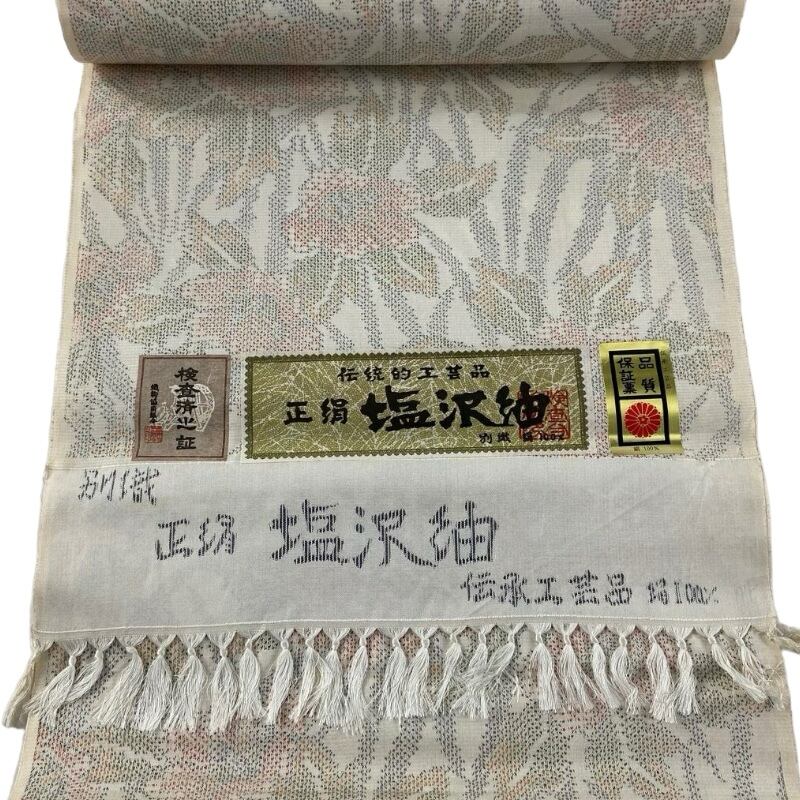 検査済之証
伝統的工芸品
正絹 塩沢紬
別織 絹100%
品質
保証票
絹 100%
別織
正絹 塩沢紬
伝承工芸品 絹100%